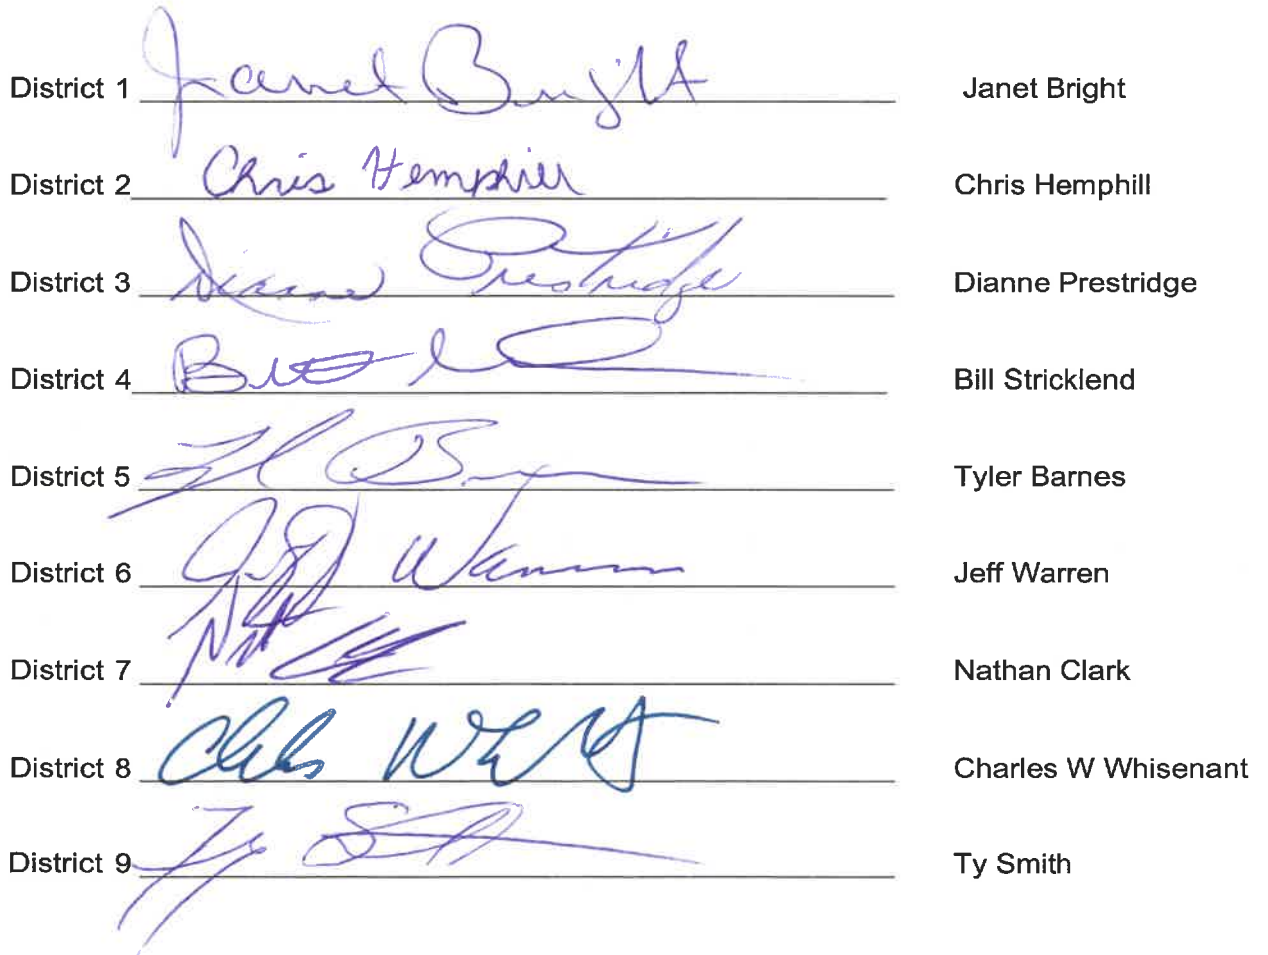 District 1 Janet Bright Janet Bright
District 2 Chris Hemphill Chris Hemphill
District 3 Dianne Prestridge Dianne Prestridge
District 4 Bill Stricklend
District 5 Tyler Barnes
District 6 Jeff Warren Jeff Warren
District 7 Nathan Clark
District 8 Charles W Whisenant
District 9 Ty Smith